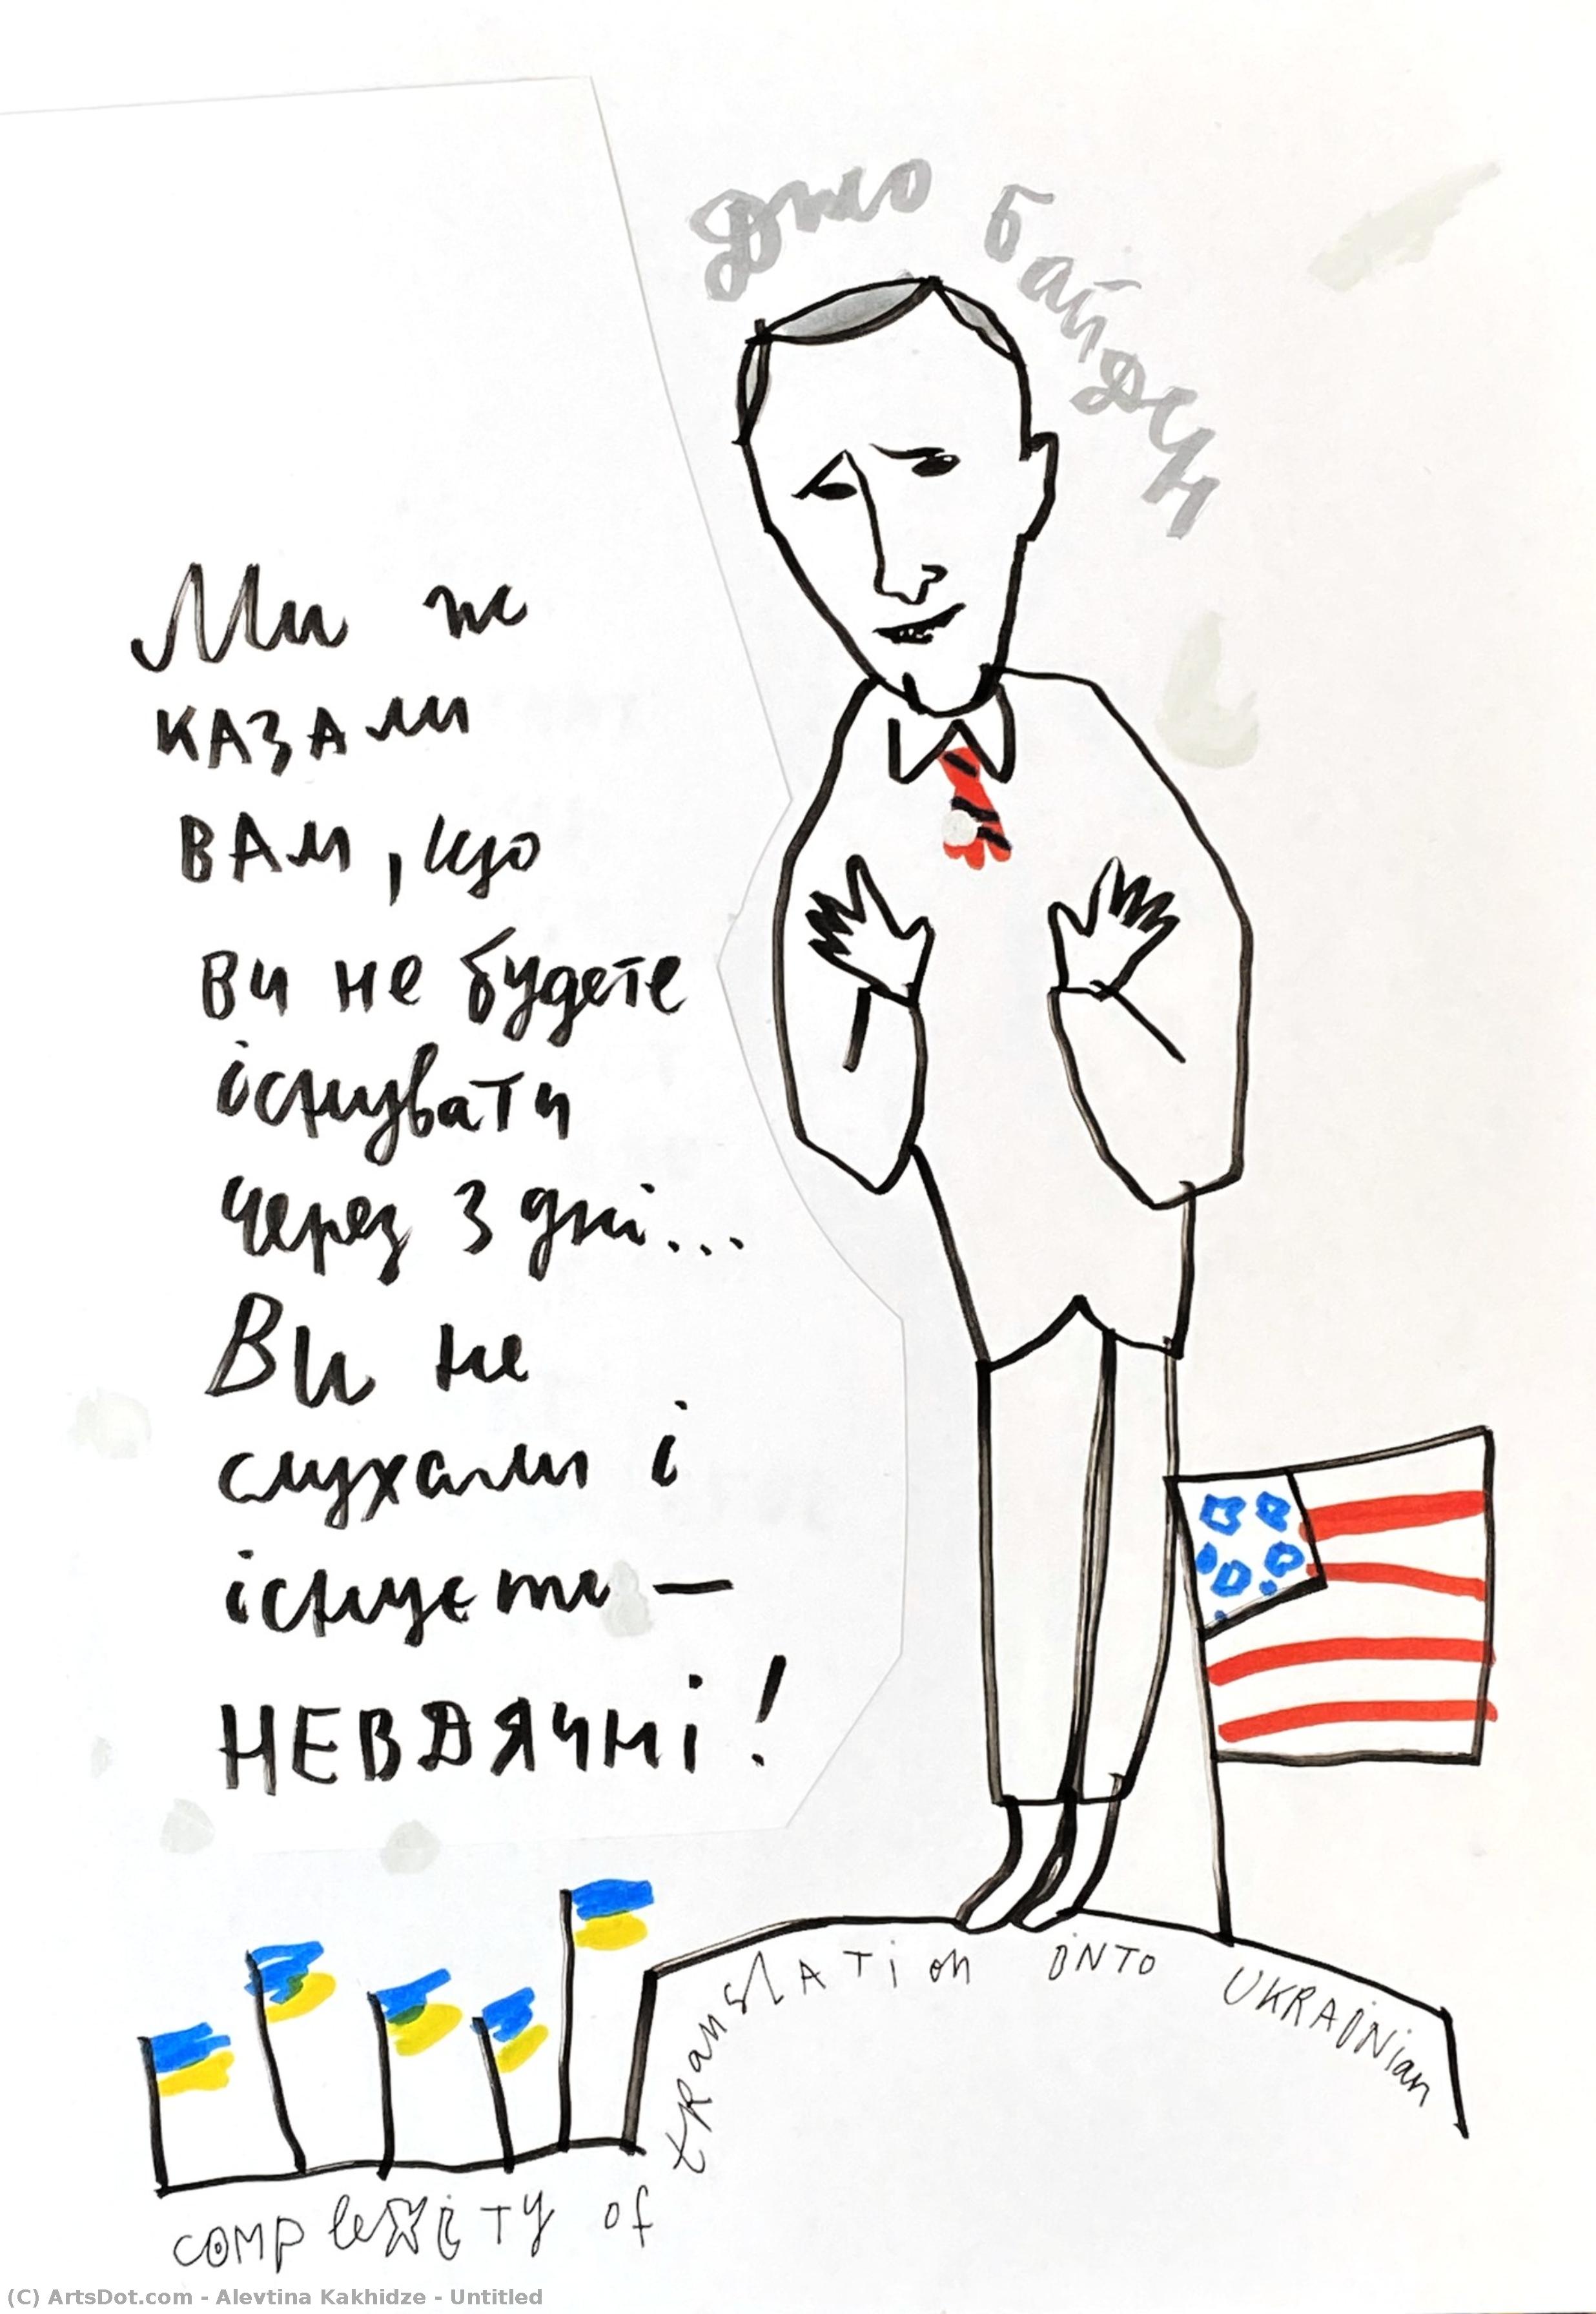 Джо Байден
Ми ж
казали
вам, що
ви не будете
існувати
через 3 дні...
Ви не
слухали і
існуєте —
НЕВДЯЧНІ!
complexity of translation into UKRAiNian
(C) ArtsDot.com - Alevtina Kakhidze - Untitled